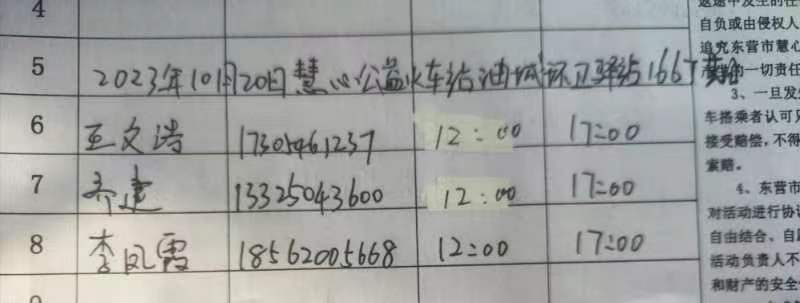 4
5 2023年10月20日慧心公益火车站油城环卫驿站1667
6 王文浩 17305461237 12:00 17:00
7 乔建 13325043600 12:00 17:00
8 李凤霞 18562005668 12:00 17:00
自负或由侵权人
追究东营市慧心
的一切责任
3、一旦发
车搭乘者认可只
接受赔偿,不得
索赔。
4、东营市
对活动进行协
自由结合、自
活动负责人不
和财产的安全